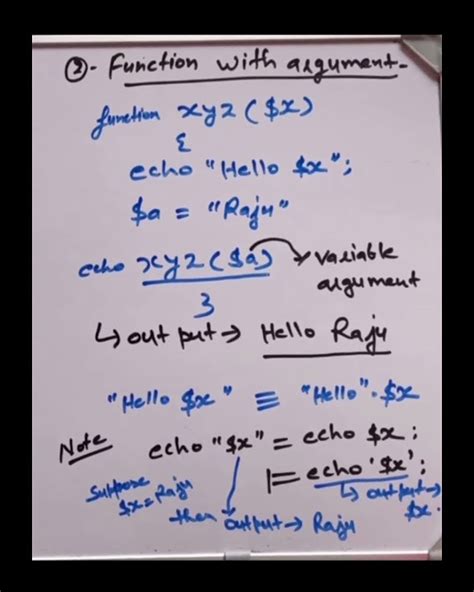 ②- Function with argument-
function xyz ($x)
{
echo "Hello $x";
$a = "Raju"
echo xyz ($a) → variable
argument
}
↳ out put → Hello Raju
"Hello $x" ≡ "Hello".$x
Note echo "$x" = echo $x;
|= echo '$x';
Suppose
$x = Raju
↳ output →
$x.
then output → Raju